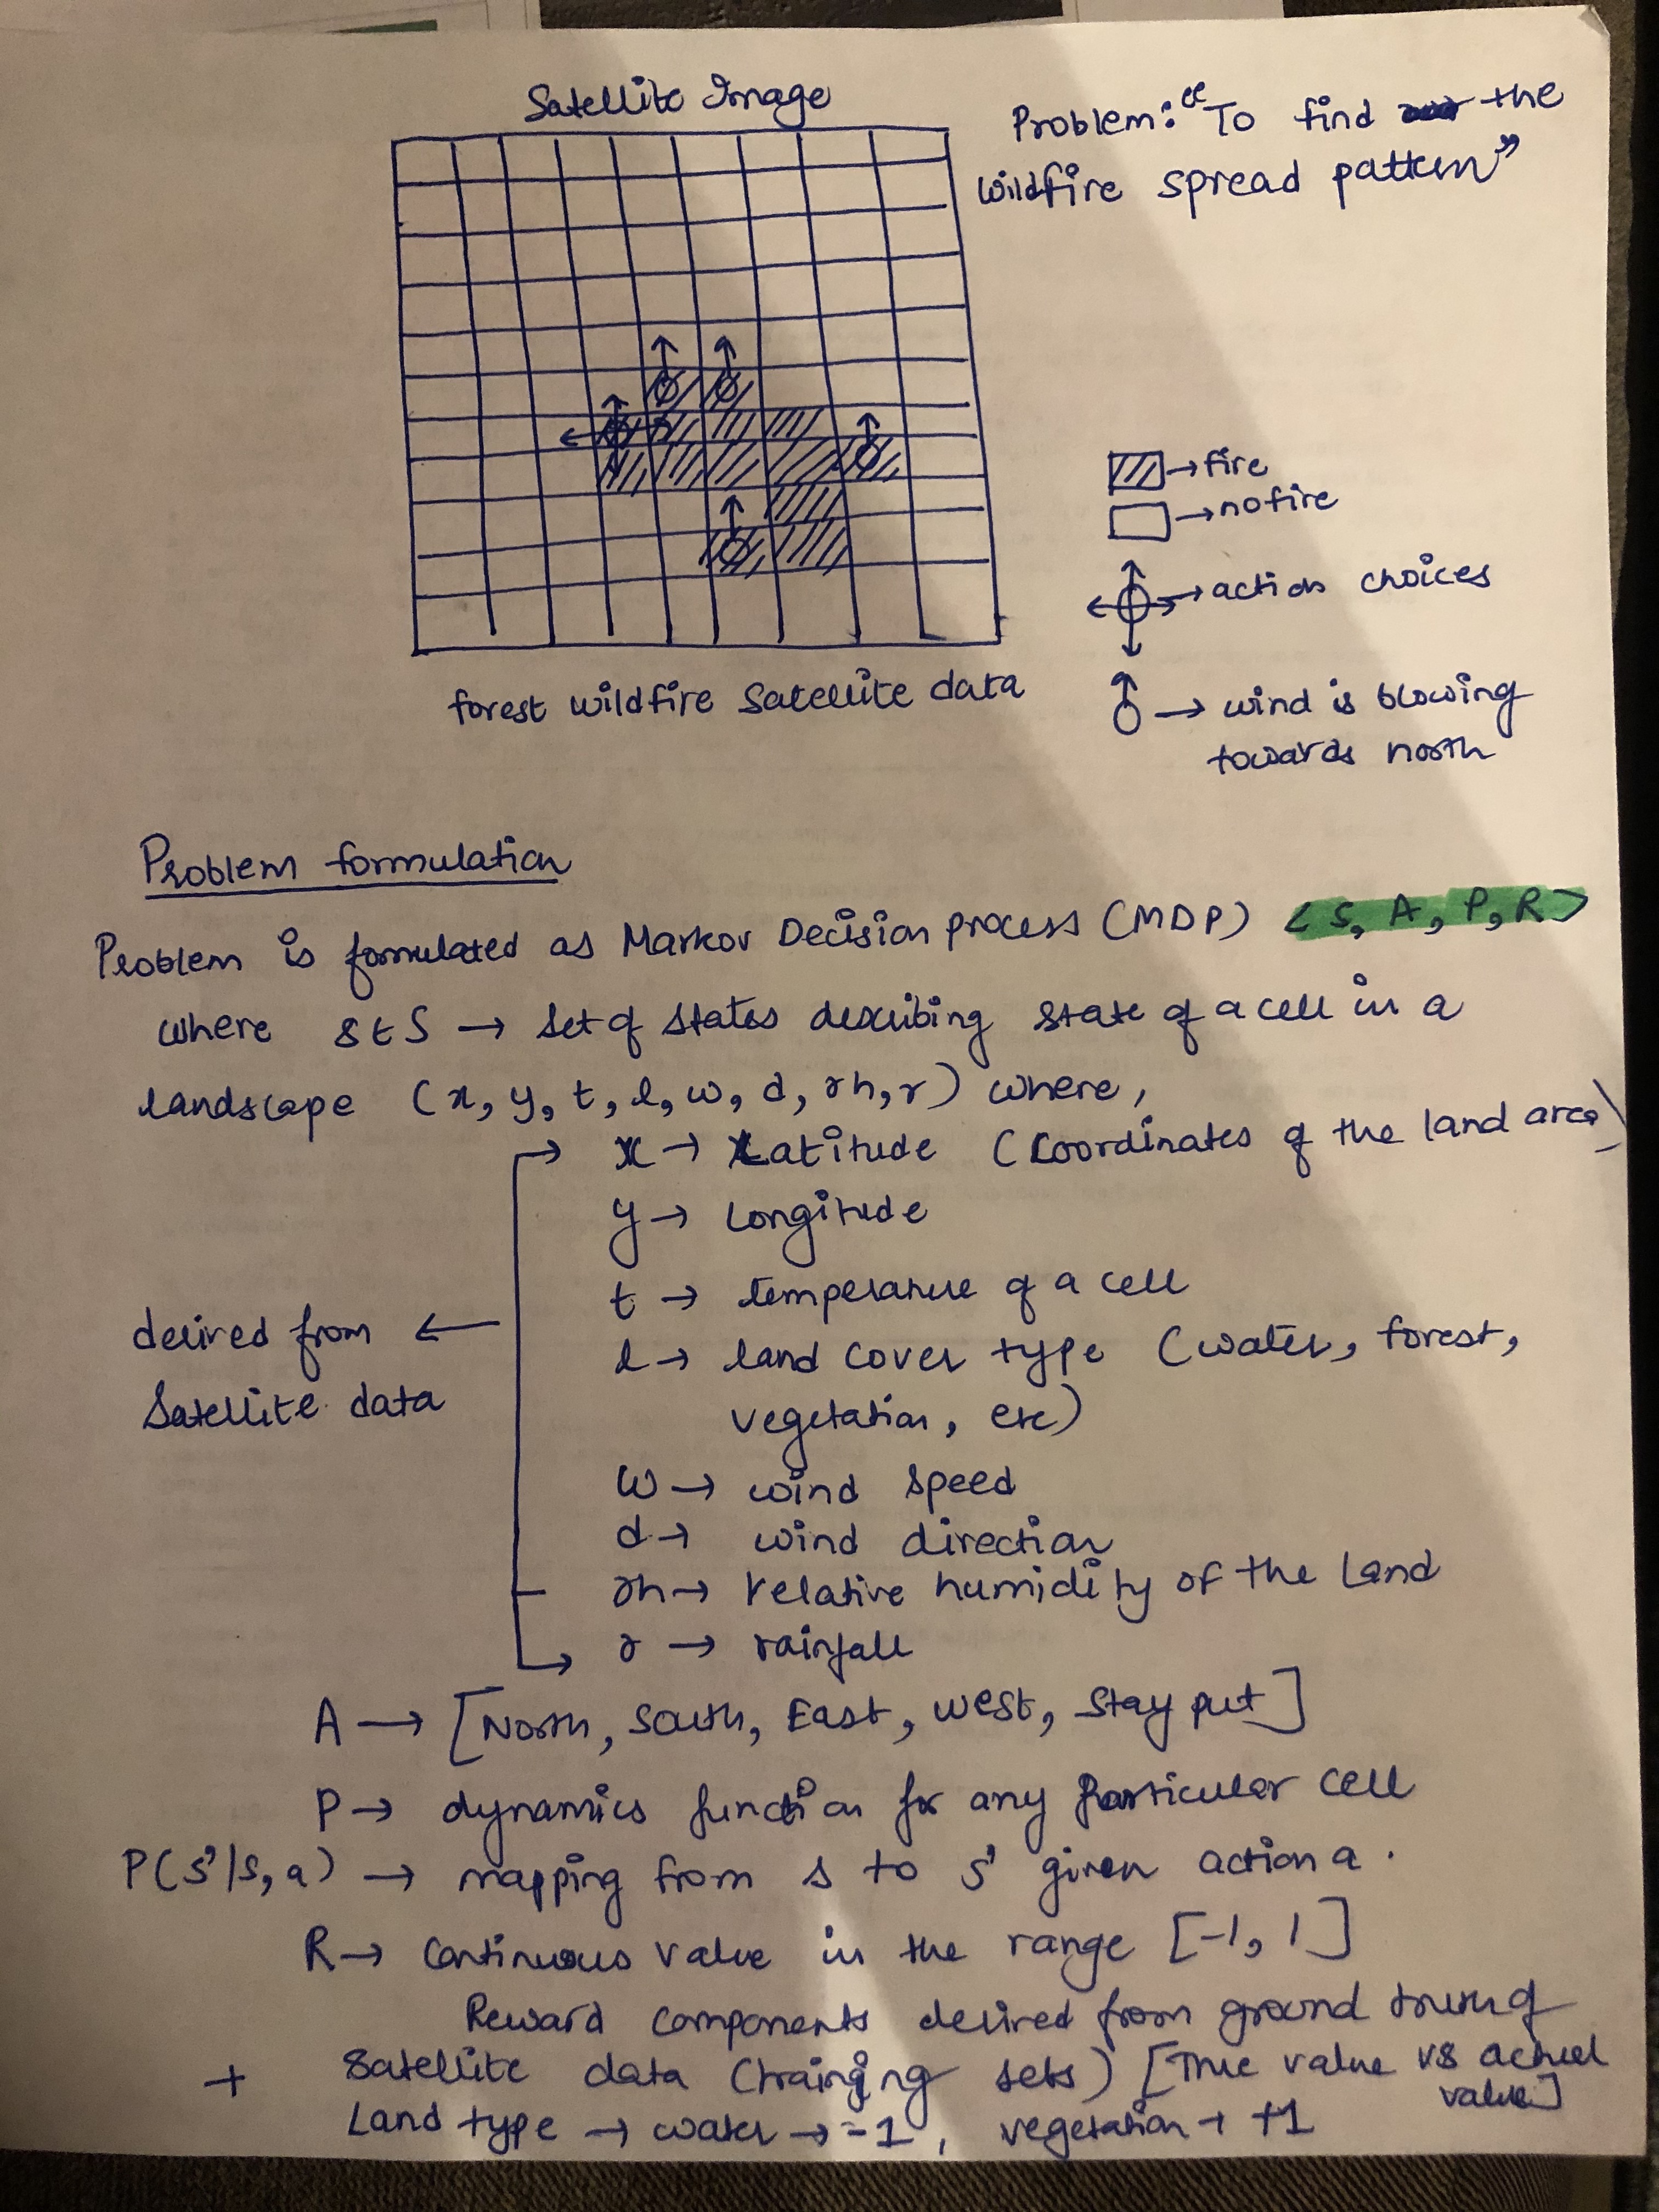 Satellite Image
Problem: "To find the
wildfire spread pattern"
→ fire
→ no fire
→ action choices
→ wind is blowing
towards north
forest wildfire Satellite data
Problem formulation
Problem is formulated as Markov Decision process (MDP) < S, A, P, R >
where s ∈ S → set of states describing state of a cell in a
landscape (x, y, t, l, w, d, rh, r) where,
x → Latitude (Coordinates of the land area)
y → Longitude
t → temperature of a cell
l → land cover type (water, forest,
vegetation, etc)
w → wind speed
d → wind direction
rh → relative humidity of the Land
r → rainfall
derived from ←
Satellite data
A → [North, South, East, west, Stay put]
P → dynamics function for any particular cell
P(s'|s, a) → mapping from s to s' given action a.
R → Continuous value in the range [-1, 1]
Reward components derived from ground truth of
+ Satellite data (training sets) [True value vs actual
value]
Land type → water → -1, vegetation → +1